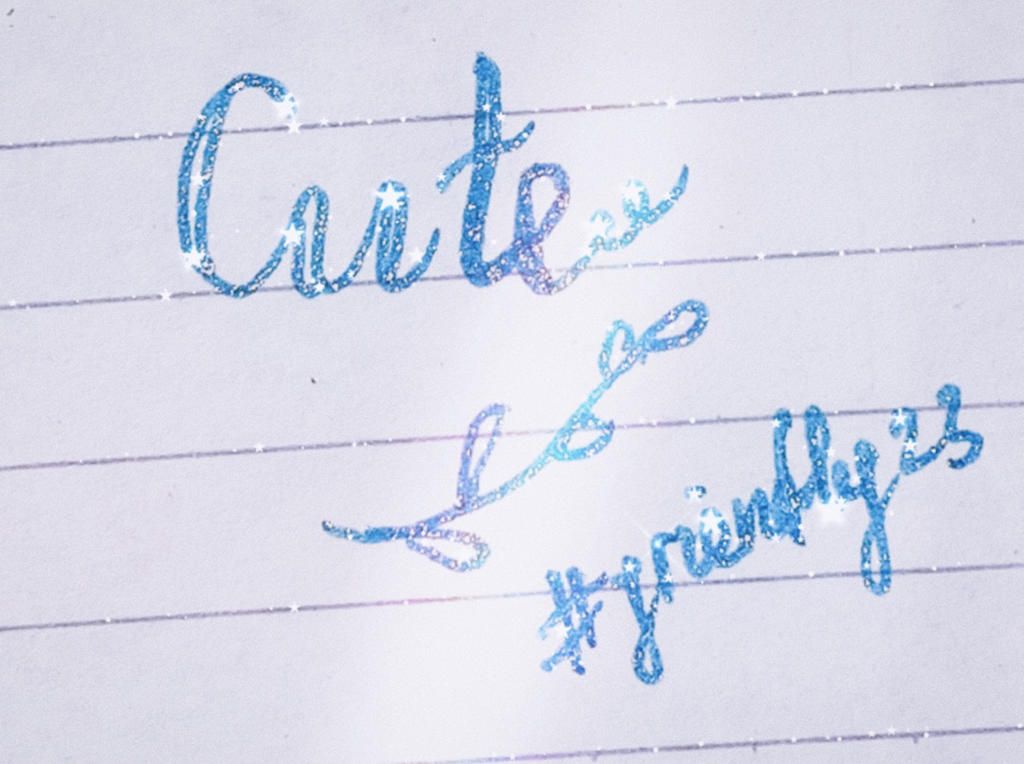 Cute
#friendly23